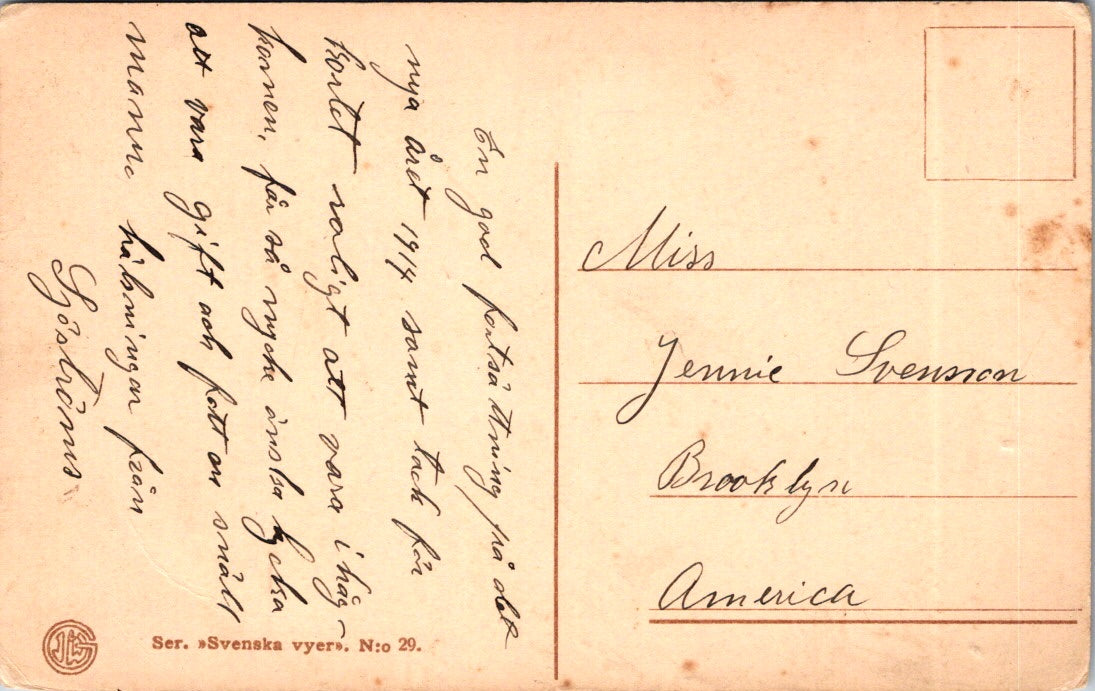 En god fortsättning på det
nya året 1914 samt tack för
kortet roligt att vara ihåg-
komen, får så mycke önska lycka
att vara gift och fott en snält
mann, hälsningar från
Sjöströms
Miss
Jennie Svensson
Brooklyn
America
Ser. »Svenska vyer». N:o 29.